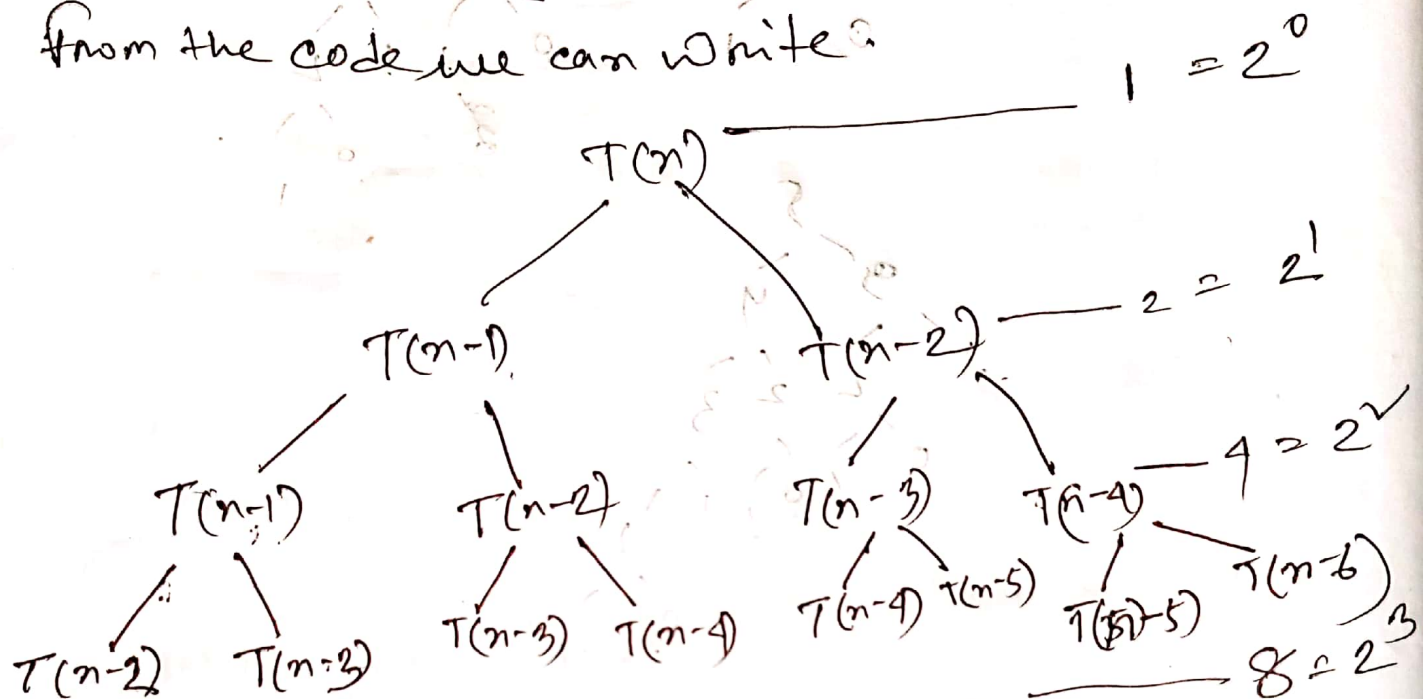 from the code we can write:
1 = 2⁰
T(n)
T(n-1) T(n-2) 2 = 2¹
T(n-1) T(n-2) T(n-3) T(n-4) 4 = 2²
T(n-2) T(n-3) T(n-3) T(n-4) T(n-4) T(n-5) T(n-5) T(n-6)
8 = 2³